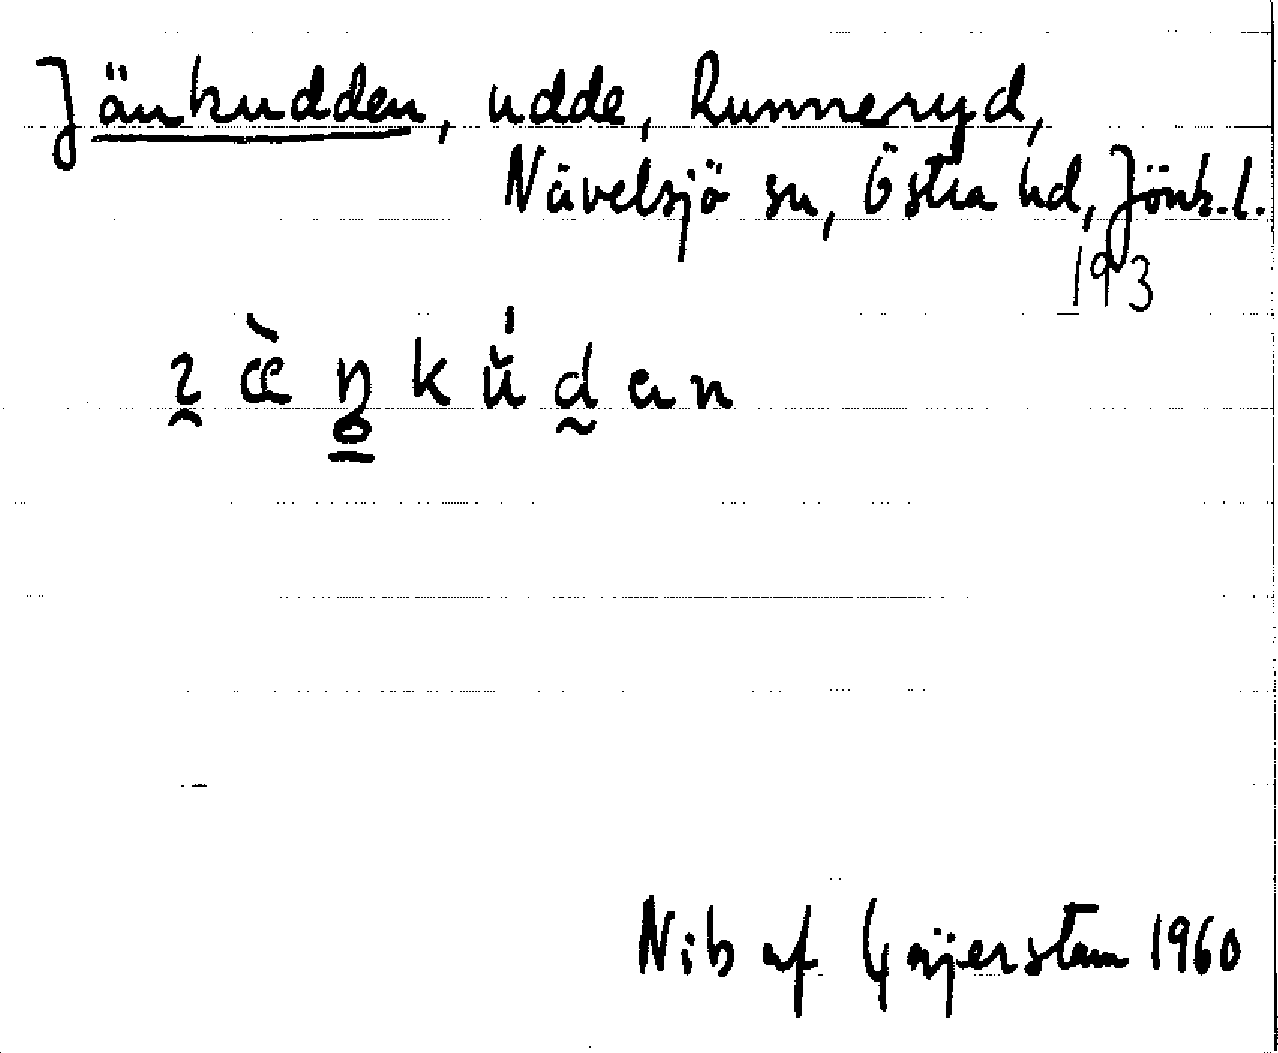 Jänkudden, udde, Runneryd,
Nävelsjö sn, Östra hd, Jönk. l.
193
Nib af Geijerstam 1960